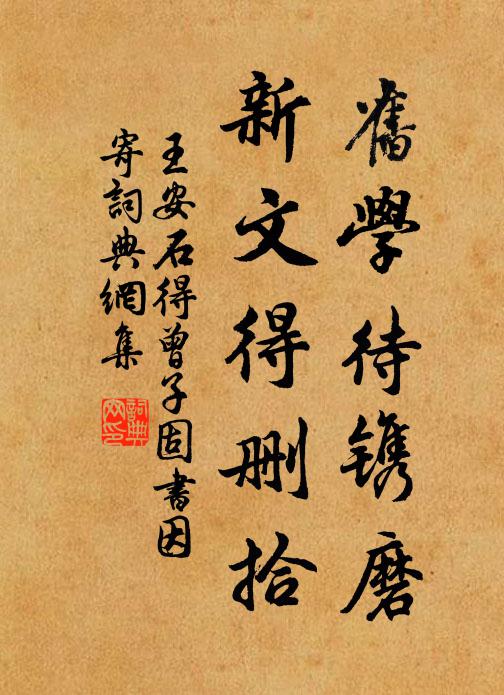 舊學待鐫磨
新文得删拾
王安石得曾子固書因
寄詞典網集
詞典
网印